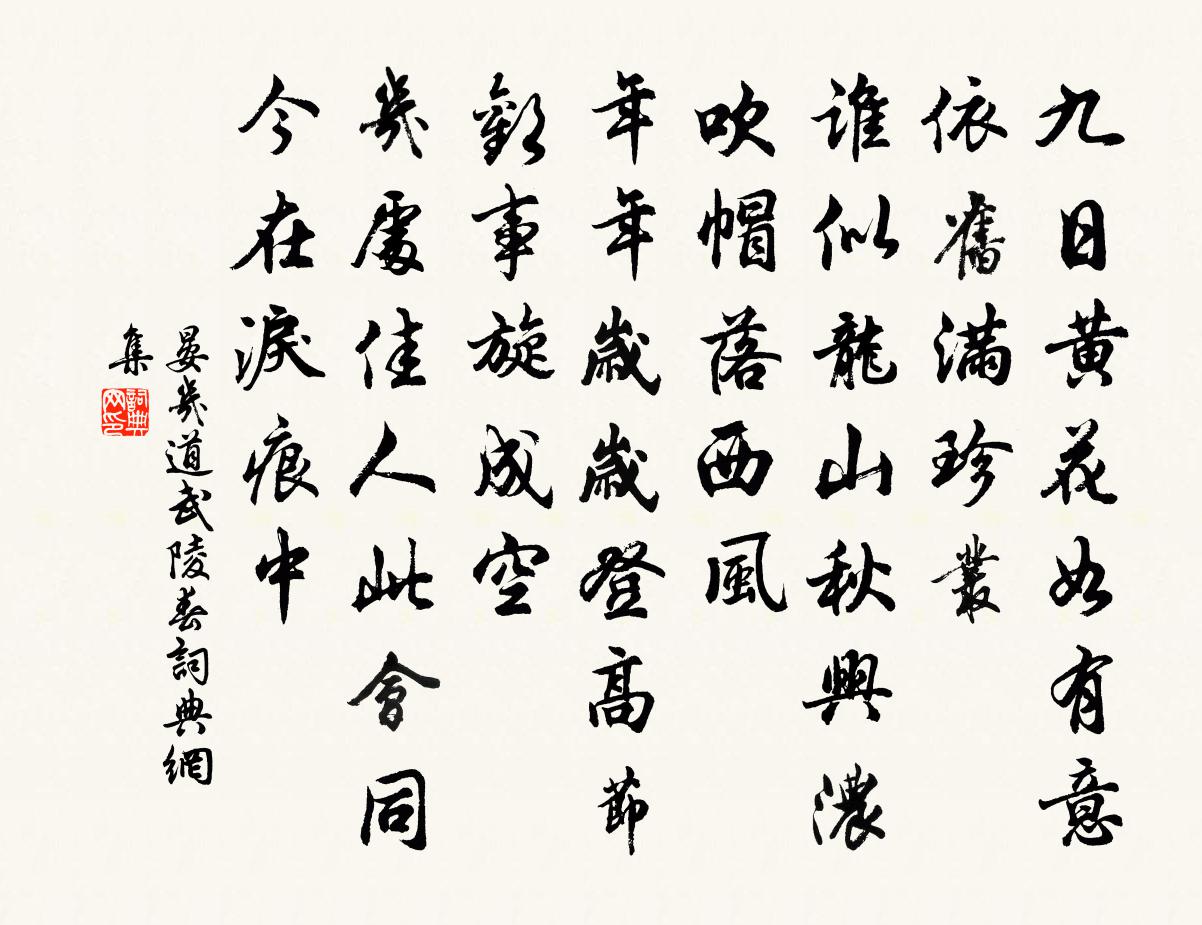 九日黄花如有意
依舊滿珍叢
誰似龍山秋興濃
吹帽落西風
年年歲歲登高節
歡事旋成空
幾處佳人此會同
今在淚痕中
晏幾道武陵春詞典網
集
詞典網印